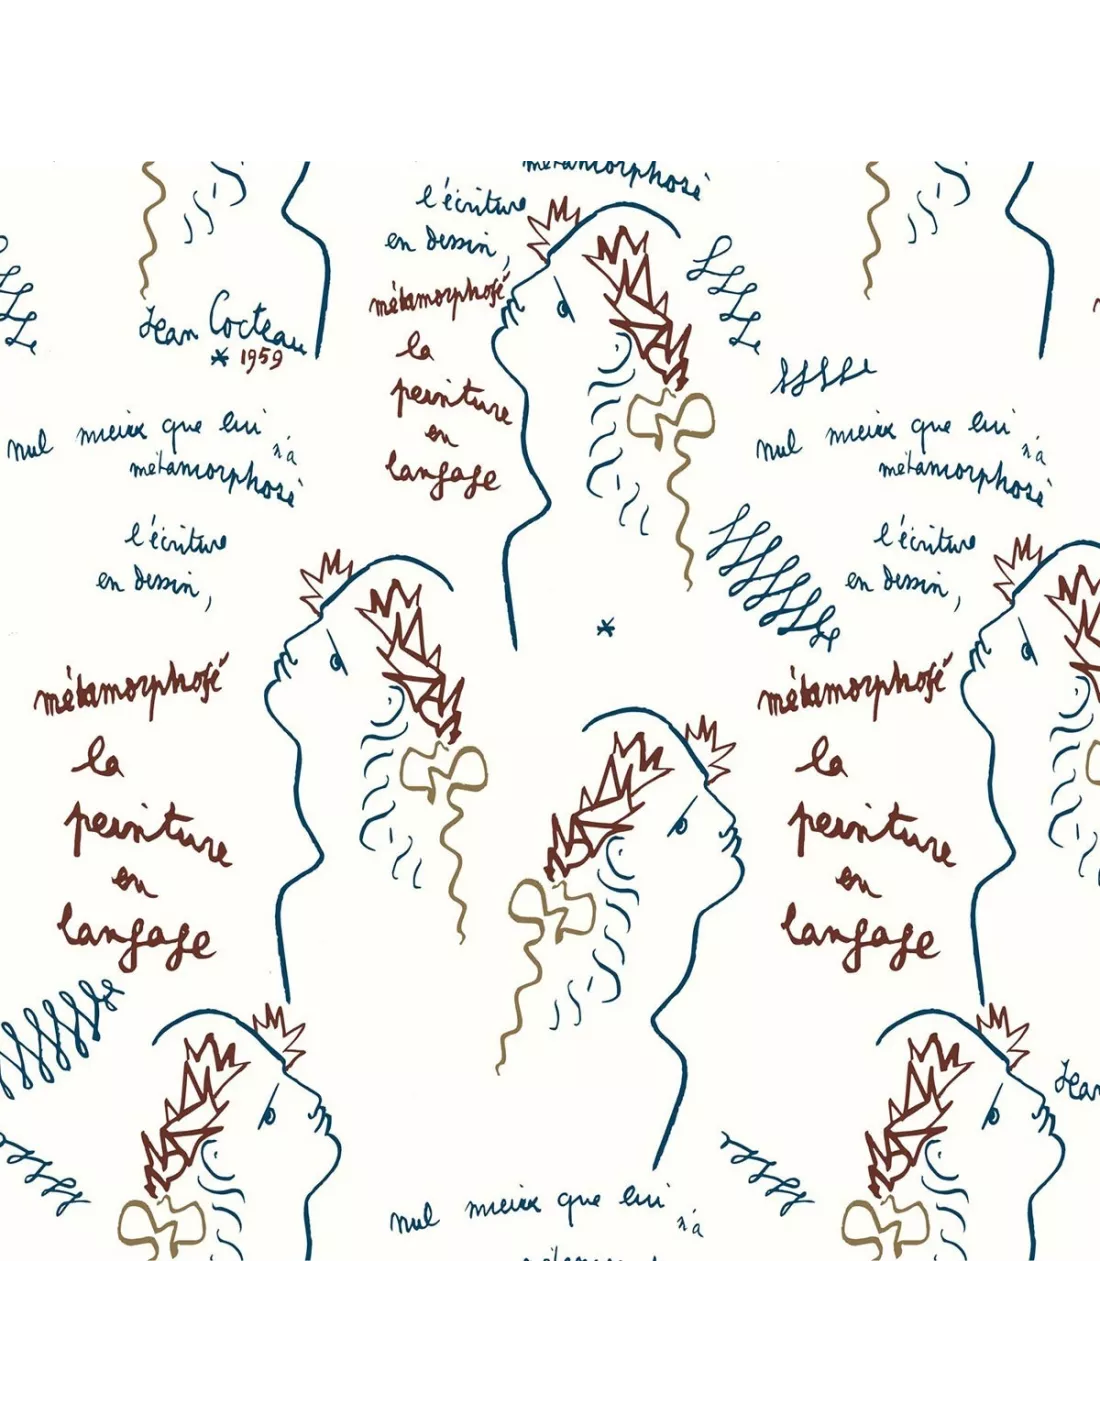 métamorphosé
l'écriture
en dessin,
métamorphosé
la
peinture
en
langage
Jean Cocteau
* 1959
nul mieux que lui
n'a
métamorphosé
l'écriture
en dessin,
métamorphosé
la
peinture
en
langage
nul mieux que lui
n'a
métamorphosé
l'écriture
en dessin,
métamorphosé
la
peinture
en
langage
Jean
nul mieux que lui
n'a